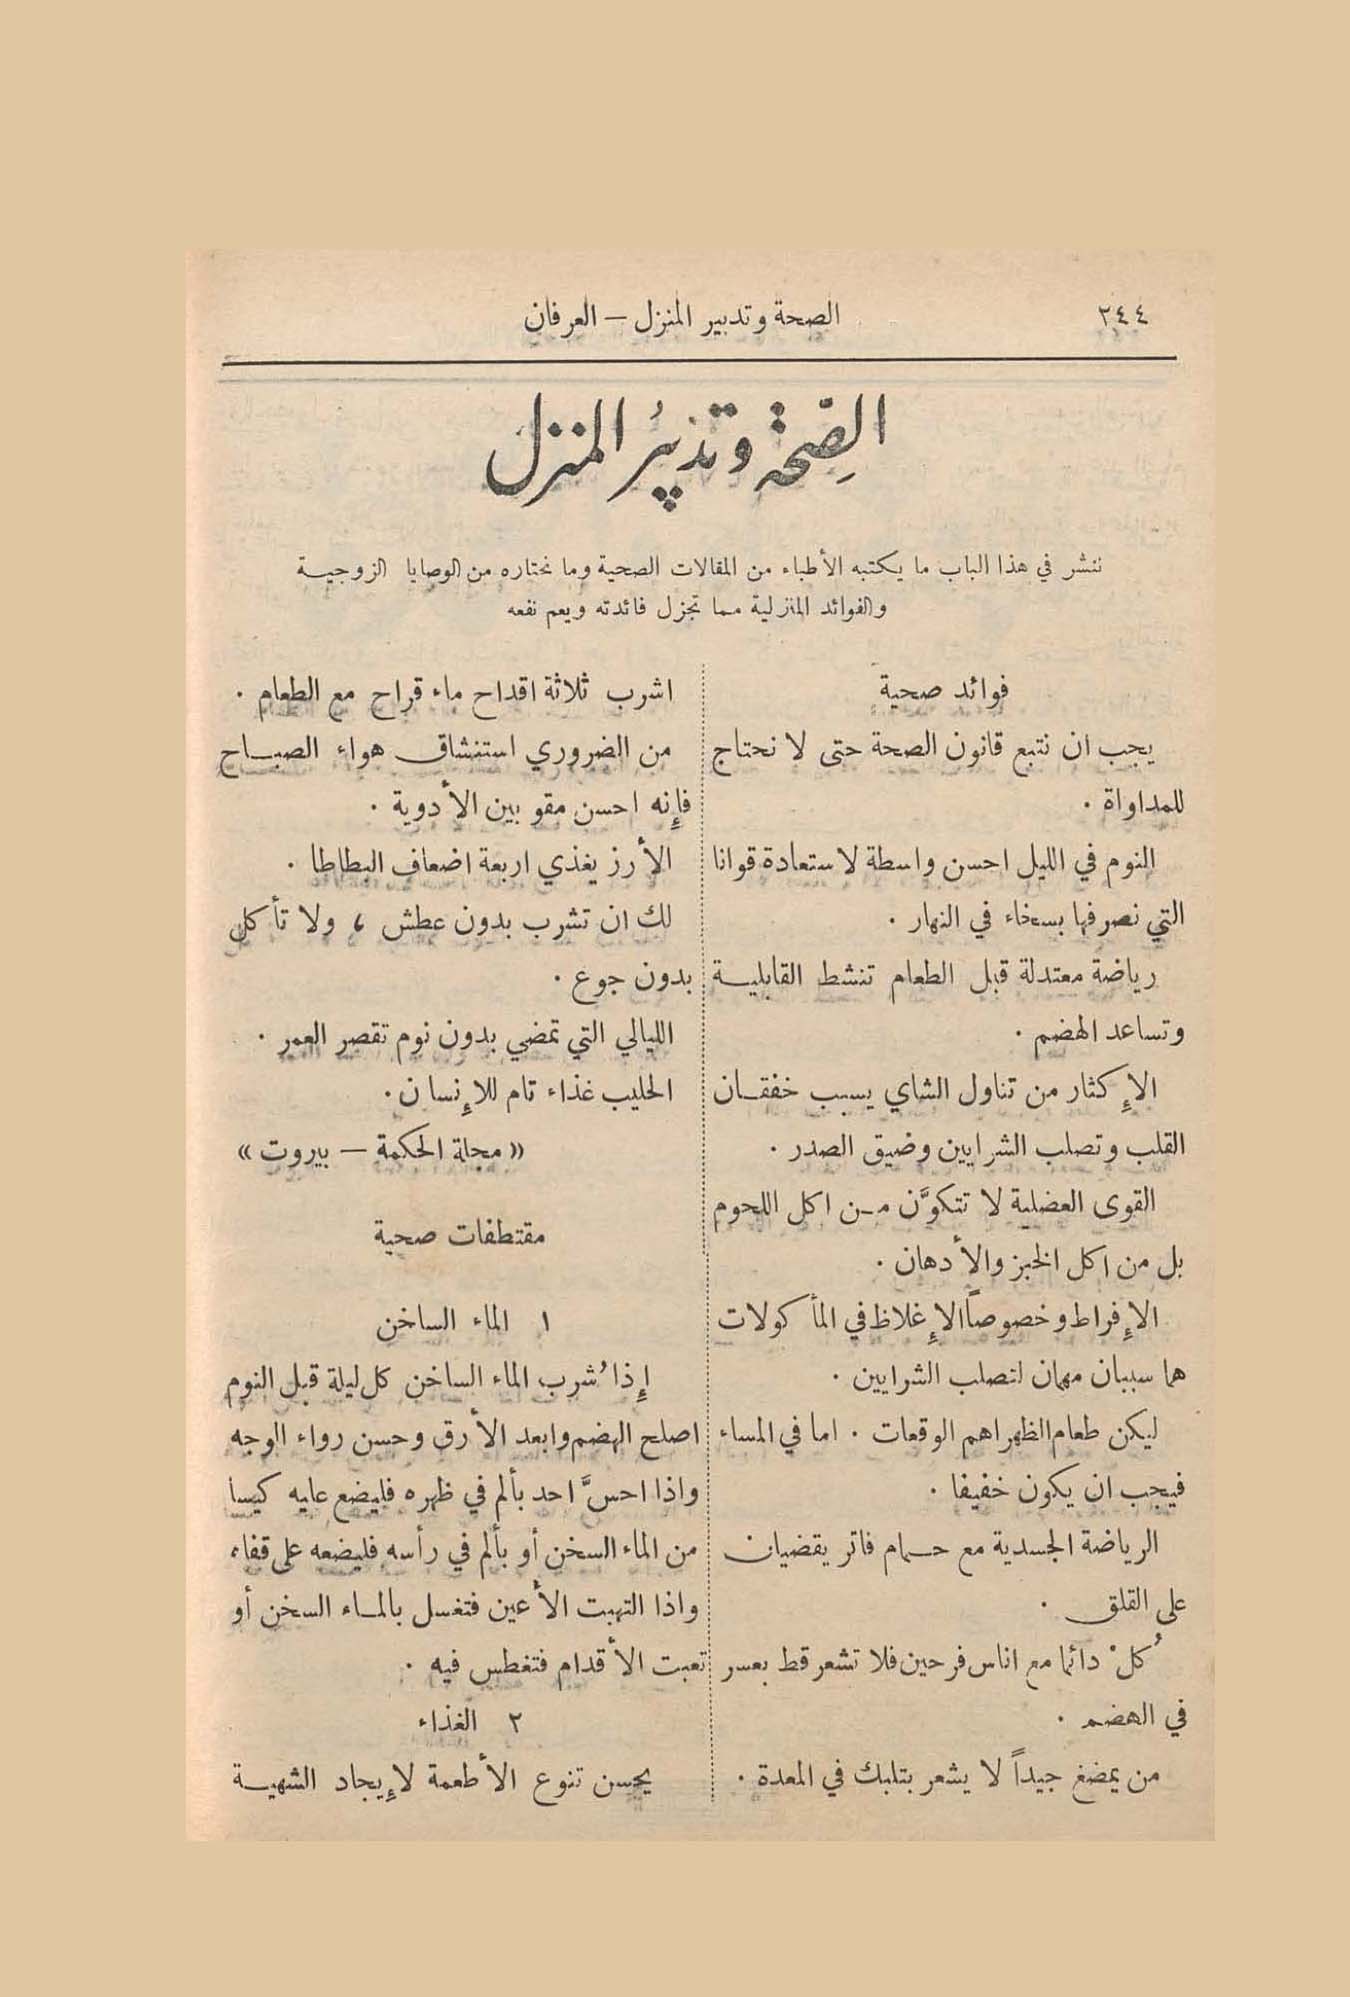 ٣٤٤
الصحة وتدبير المنزل — العرفان
الصِّحة وتدبيرُ المنزل
ننشر في هذا الباب ما يكتبه الأطباء من المقالات الصحية وما نختاره من الوصايا الزوجية
والفوائد المنزلية مما تجزل فائدته ويعم نفعه
فوائد صحية
يجب ان نتبع قانون الصحة حتى لا نحتاج
للمداواة .
النوم في الليل احسن واسطة لاستعادة قوانا
التي نصرفها بسخاء في النهار .
رياضة معتدلة قبل الطعام تنشط القابلية
وتساعد الهضم .
الإكثار من تناول الشاي يسبب خفقان
القلب وتصلب الشرايين وضيق الصدر .
القوى العضلية لا تتكوَّن من اكل اللحوم
بل من اكل الخبز والأدهان .
الإفراط وخصوصاً الإغلاظ في المأكولات
هما سببان مهمان لتصلب الشرايين .
ليكن طعام الظهر اهم الوقعات . اما في المساء
فيجب ان يكون خفيفا .
الرياضة الجسدية مع حمام فاتر يقضيان
على القلق .
كُلْ دائما مع اناس فرحين فلا تشعر قط بعسر
في الهضم .
من يمضغ جيداً لا يشعر بتلبك في المعدة .
اشرب ثلاثة اقداح ماء قراح مع الطعام .
من الضروري استنشاق هواء الصباح
فإنه احسن مقو بين الأدوية .
الأرز يغذي اربعة اضعاف البطاطا .
لك ان تشرب بدون عطش ، ولا تأكل
بدون جوع .
الليالي التي تمضي بدون نوم تقصر العمر .
الحليب غذاء تام للإنسان .
« مجلة الحكمة — بيروت »
مقتطفات صحية
١ الماء الساخن
إذا شُرب الماء الساخن كل ليلة قبل النوم
اصلح الهضم وابعد الأرق وحسن رواء الوجه
واذا احسَّ احد بألم في ظهره فليضع عليه كيسا
من الماء السخن أو بألم في رأسه فليضعه على قفاه
واذا التهبت الأعين فتغسل بالماء السخن أو
تعبت الأقدام فتغطس فيه .
٢ الغذاء
يحسن تنوع الأطعمة لإيجاد الشهية